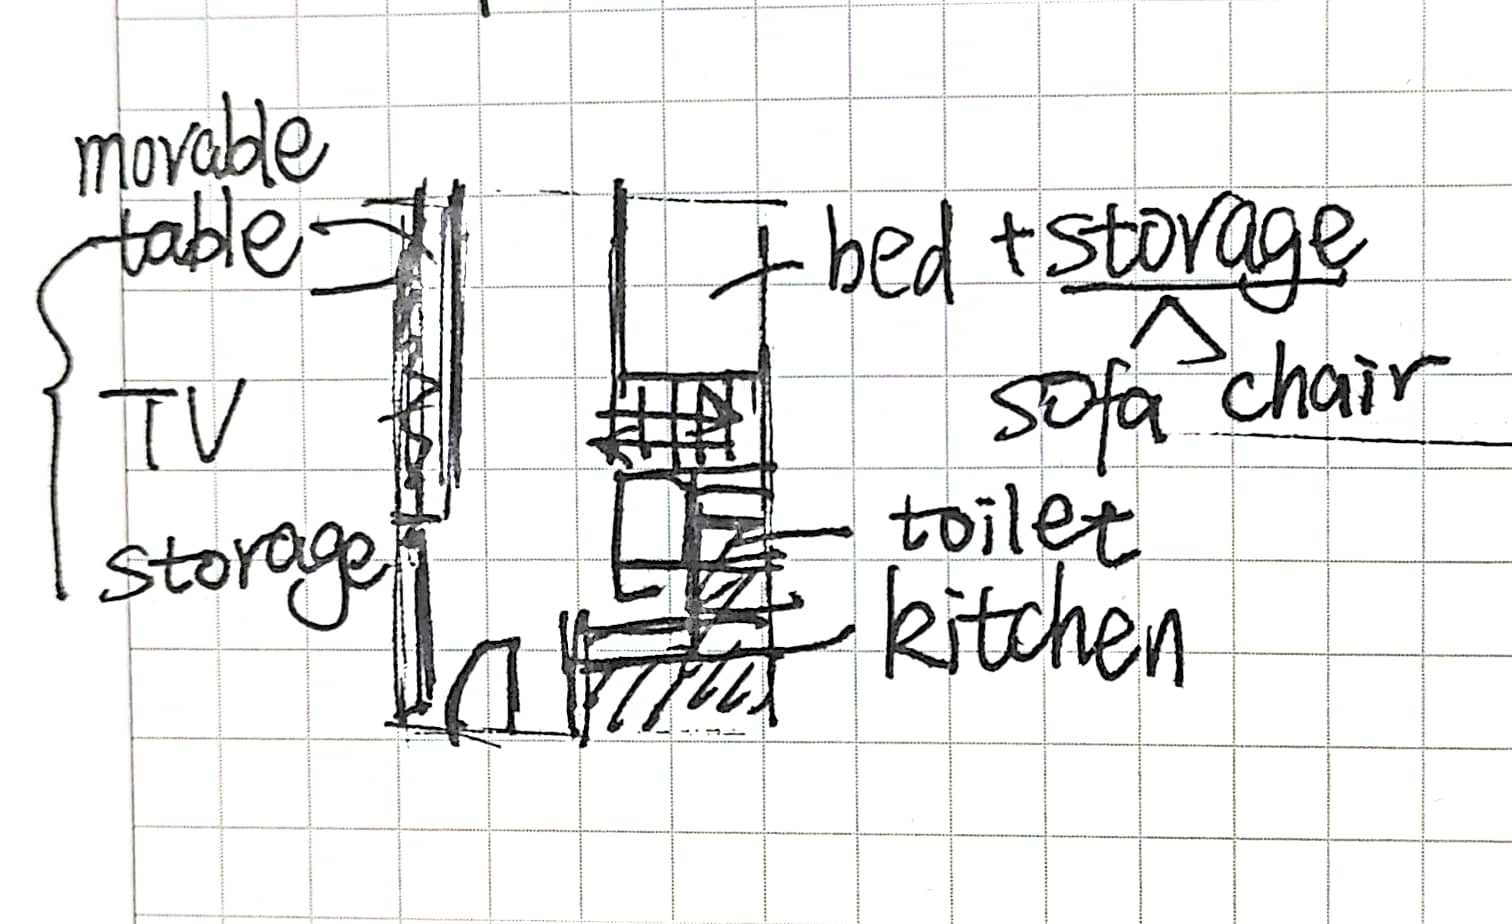 movable
table
TV
storage
bed + storage
sofa chair
toilet
kitchen